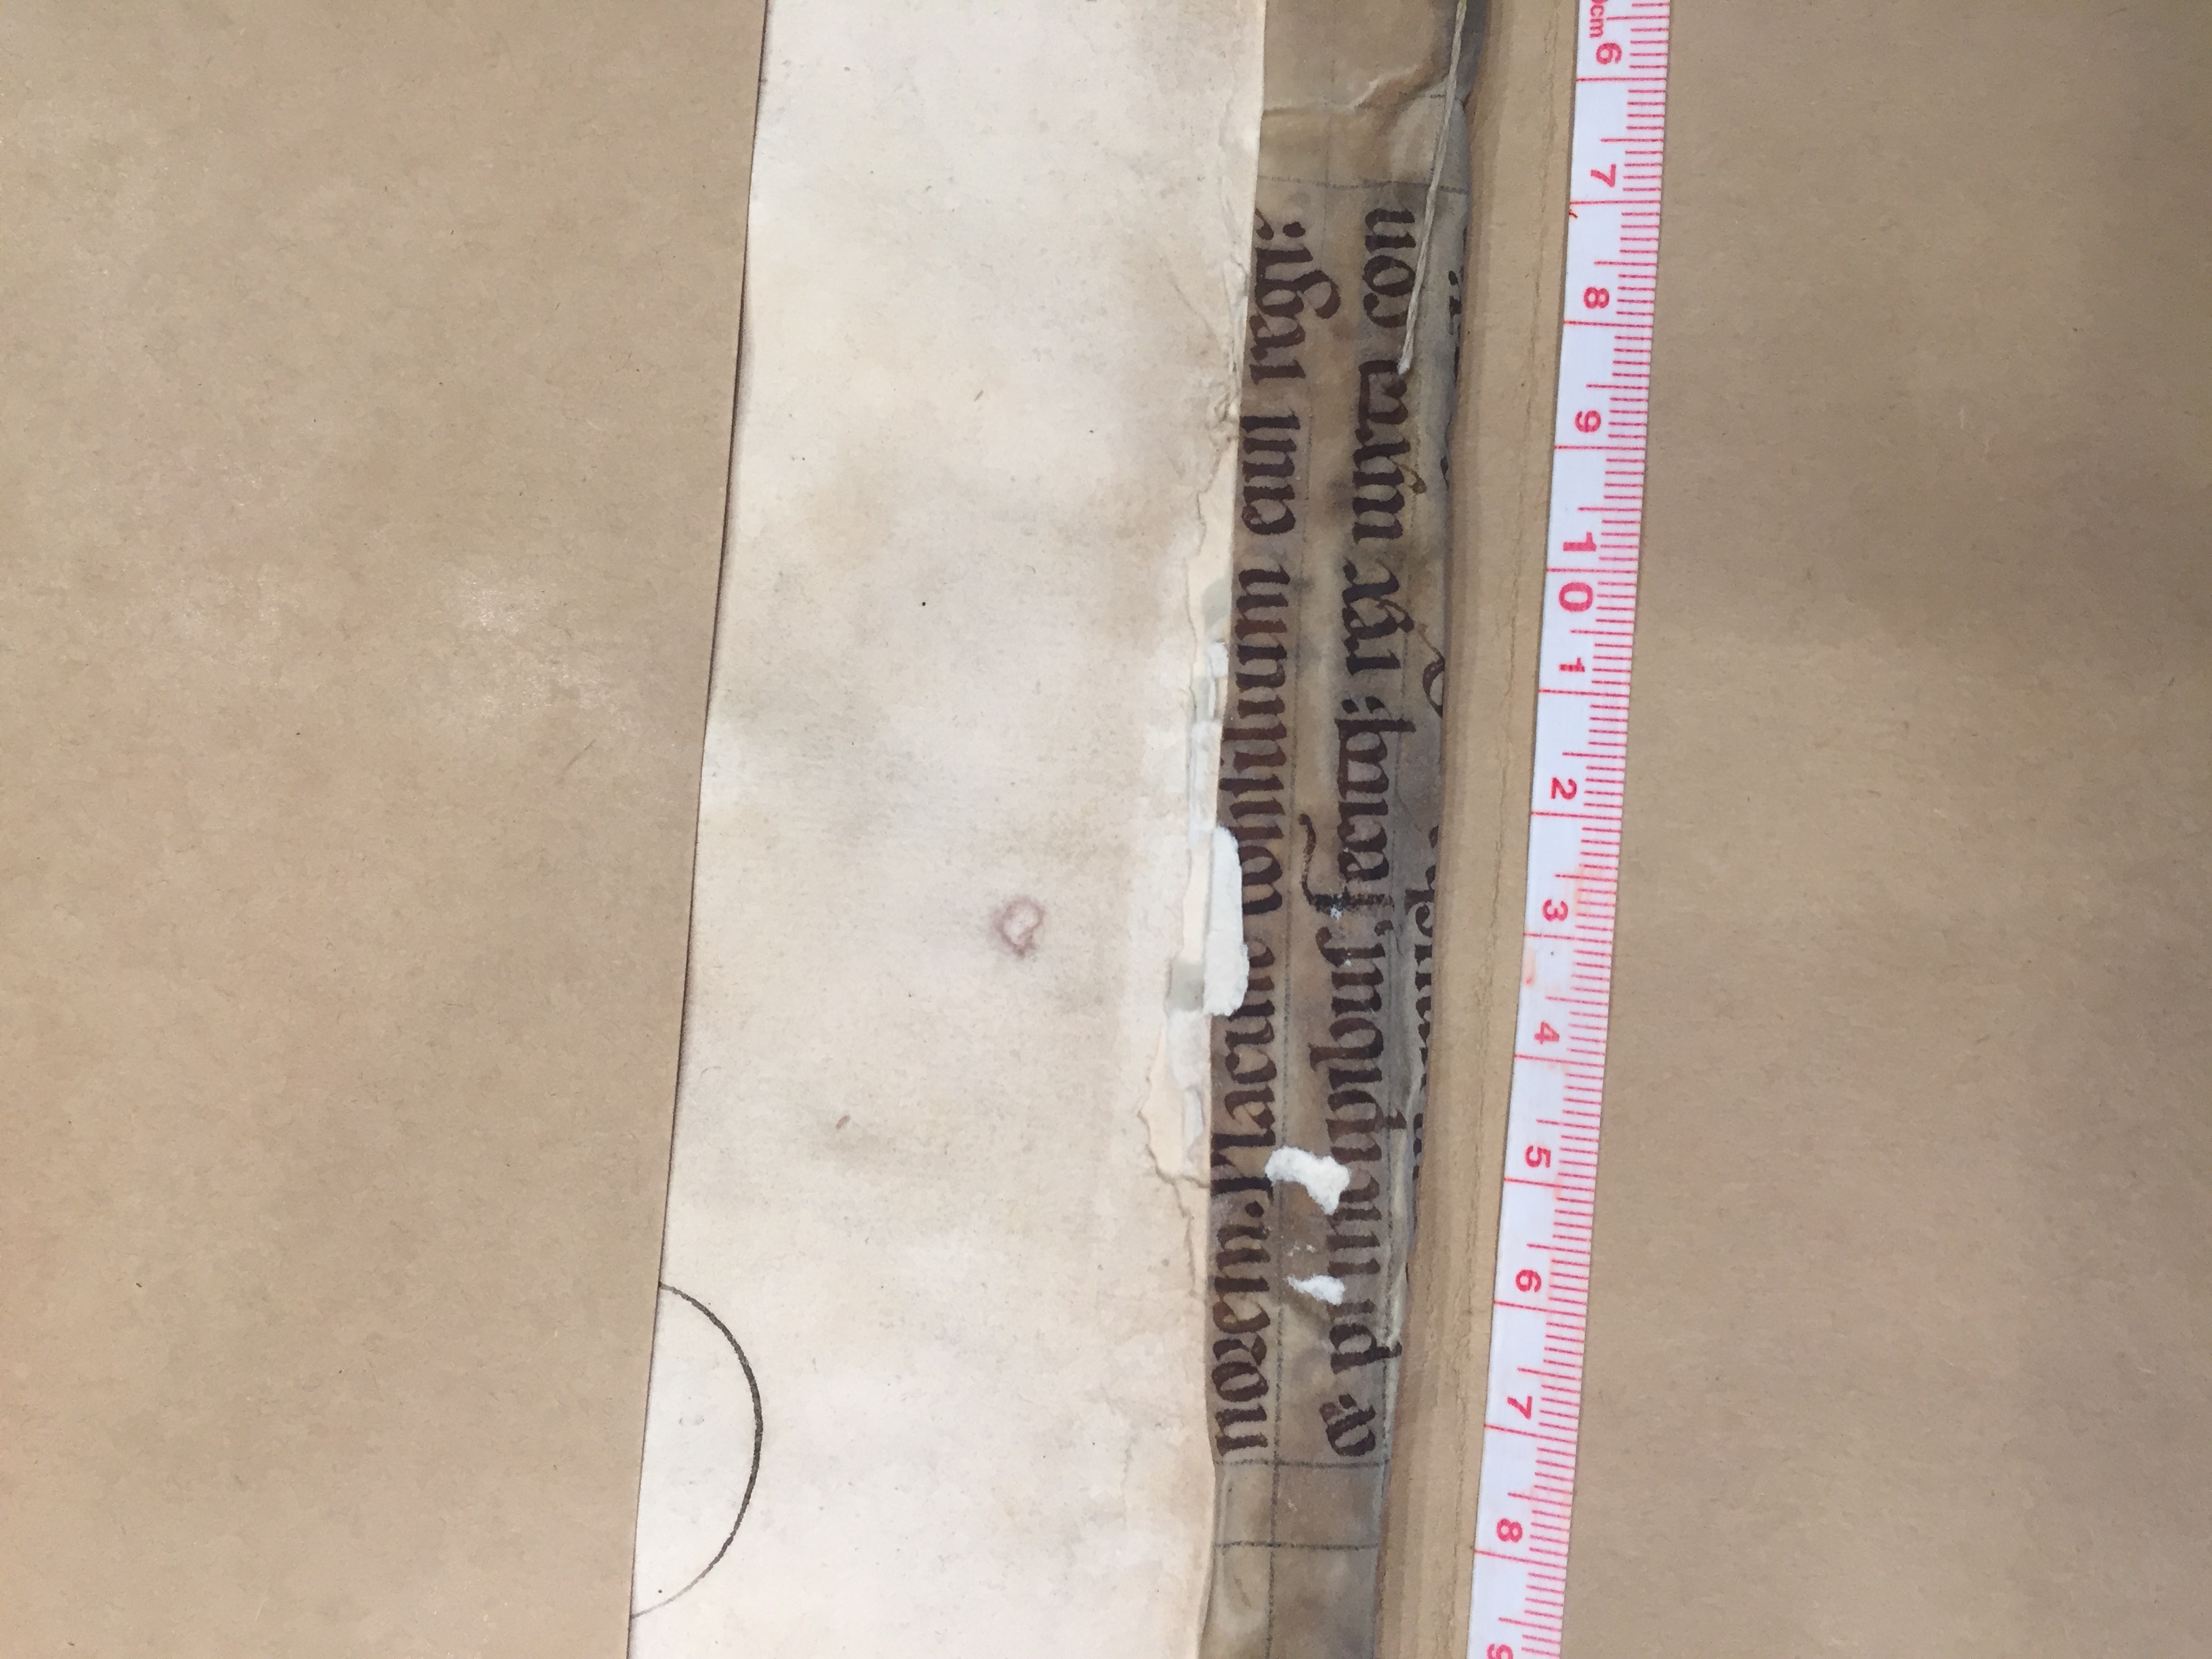 norem. Placuit consilium eiuſ regi:
& principibuſ, fecitq: rex iuxta con
muchan
9 8 7 6 5 4 3 2 1 10 1 9 8 7 6 cm